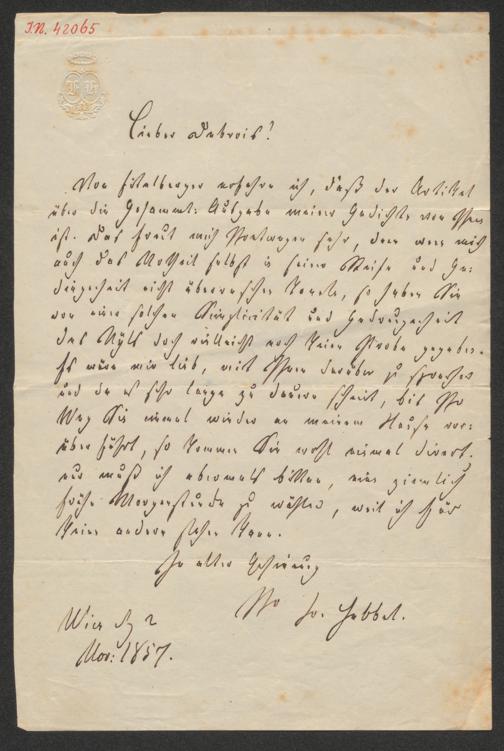 I.N. 42065
Lieber Debrois!
Von Eitelberger erfahre ich, daß der Artikel
über die Gesammt-Ausgabe meiner Gedichte von Ihnen
ist. Das freut mich Ihretwegen sehr, denn wenn mich
auch das Urtheil selbst in seiner Reife und Ge-
diegenheit nicht überraschen konnte, so haben Sie
von einer solchen Simplicität und Gedrungenheit
des Styls doch vielleicht noch keine Probe gegeben.
Es wäre mir lieb, mit Ihnen darüber zu sprechen
und da es sehr lange zu dauern scheint, bis Ihr
Weg Sie einmal wieder an meinem Hause vor-
über führt, so kommen Sie wohl einmal direct.
nur muß ich abermals bitten, eine ziemlich
frühe Morgenstunde zu wählen, weil ich für
keine andere stehen kann.
In alter Gesinnung
Ihr Fr. Hebbel.
Wien d. 2
Nov: 1857.